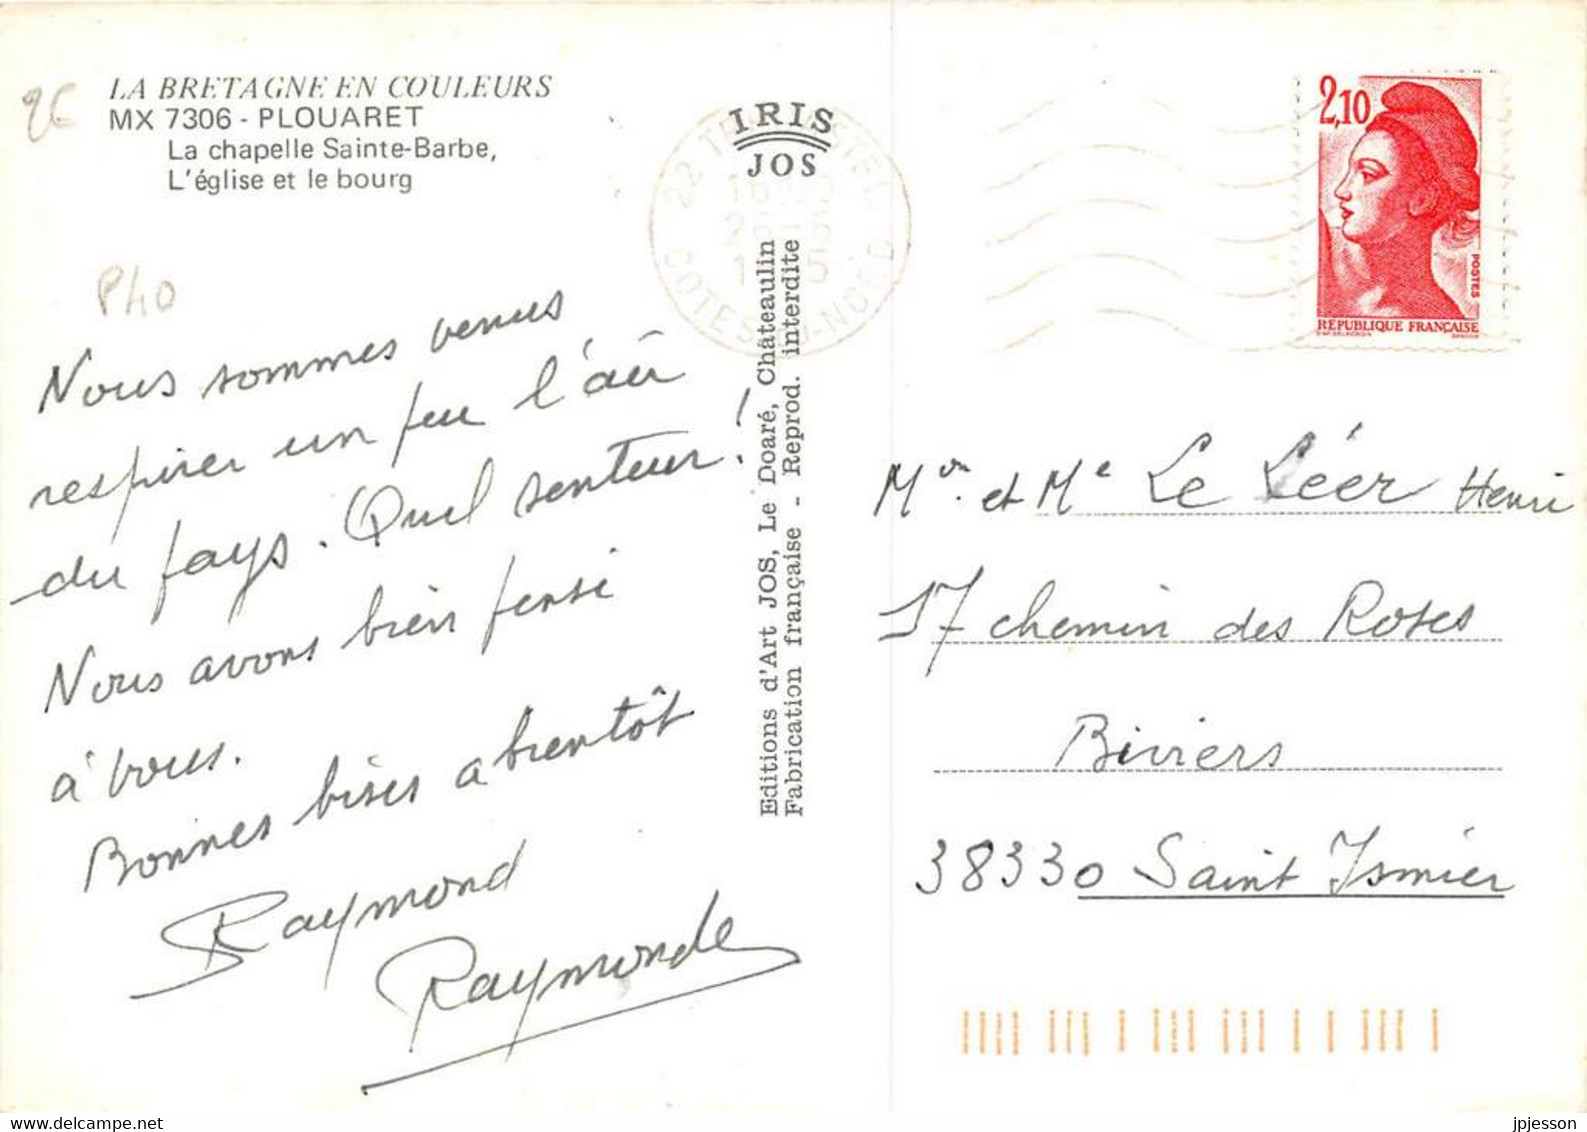 LA BRETAGNE EN COULEURS
MX 7306 - PLOUARET
La chapelle Sainte-Barbe,
L'église et le bourg
26
P40
Nous sommes venus
respirer un peu l'air
du pays. Quel senteur!
Nous avons bien pensé
à vous.
Bonnes bises a bientôt
Raymond
Raymonde
IRIS
JOS
22
COTES-DU-NORD
Editions d'Art JOS, Le Doaré, Châteaulin
Fabrication française - Reprod. interdite
2,10
POSTES
RÉPUBLIQUE FRANÇAISE
Mr. et Me Le Léer Henri
17 chemin des Roses
Biviers
38330 Saint Ismier
jpjesson